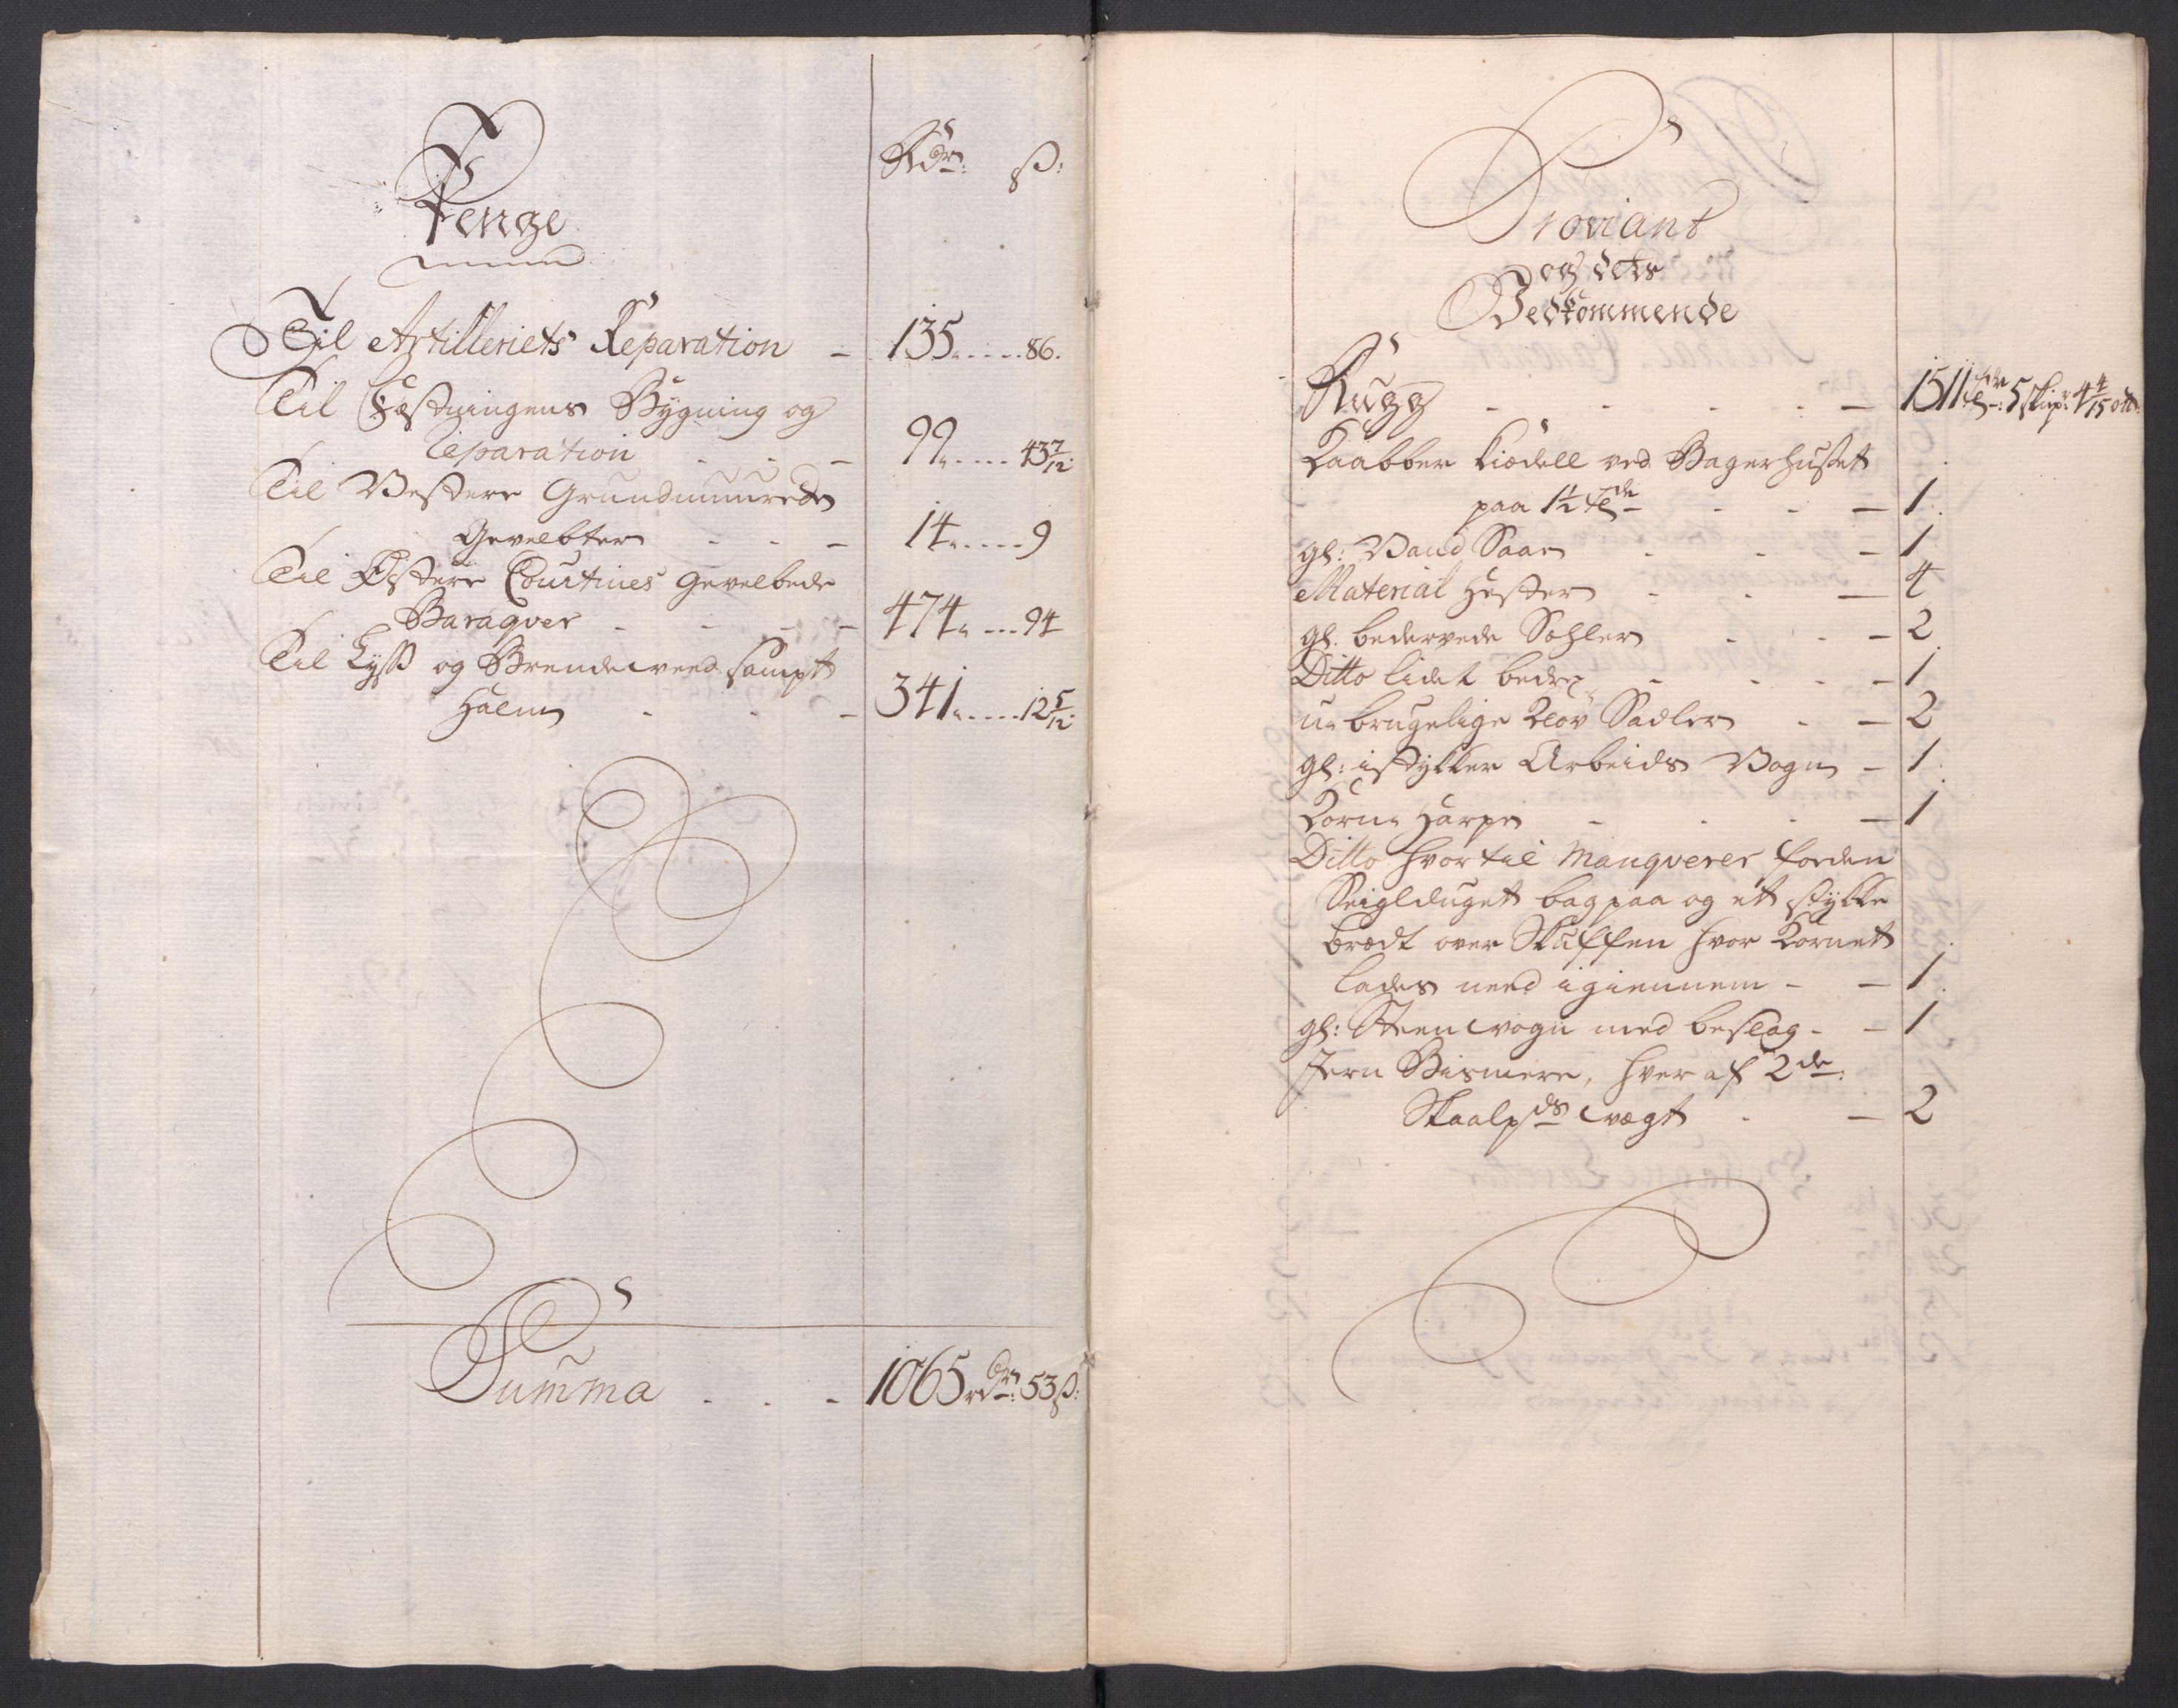 Penge
Rdr: ß:
Til Artilleriets Reparation - 135 . . . . 86.
Til Fæstningens Bÿgning og
Reparation - - - 99 . . . . 43 7/12.
Til Vestere Grundmuurede
Gevelbter - - - 14 . . . . 9
Til Østere Courtines Gevelbede
Baraqver - - - - 474 . . . 94
Til Lyss og Brendeveed sampt
Halm - - - 341 . . . . 12 5/12.
Summa . . - 1065 rdr: 53 ß:
Proviant
og dets
Vedkommende
Rugg - - - - - 1511 tdr: 5 skiep: 4 4/15 ott:
Kaabber Kiedell ved Bagerhuset
paa 1½ tde - - - - 1.
gl: Vand Saar - - - 1
Material Hester - - - 4
gl. bedervede Sehler - - - 2
Ditto lidet bedre - - - - 1
u-brugelige Kløv Sadler - - 2
gl: istÿkker Arbeids Vogn - 1.
Korn Harpe - - - - 1
Ditto hvortil Manqverer forden
Seigelduget bagpaa og et stÿkke
brædt over Skuffen hvor Kornet
lades need igiennem - - 1.
gl: Steen vogn med beslag - - 1
Jern Bismere, hver af 2de:
Skaalpds vegt - - 2